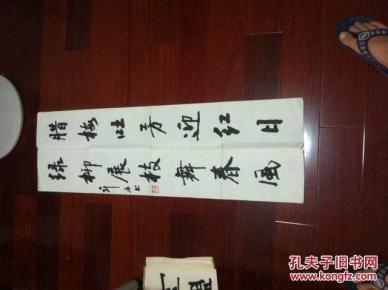 腊梅吐芳迎红日
绿柳展枝舞春风
孔夫子旧书网